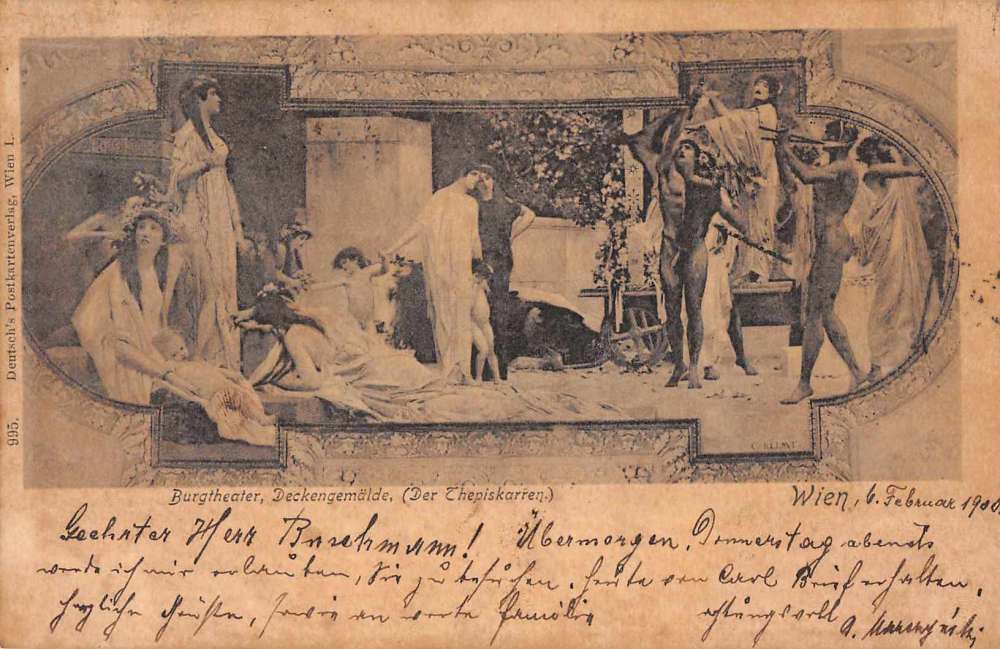 995. Deutsch's Postkartenverlag, Wien I.
G. KLIMT
Burgtheater, Deckengemälde, (Der Thepiskarren.)
Wien, 6. Februar 1900
Geehrter Herr Buschmann! Übermorgen, Donnerstag abends
werde ich mir erlauben, Sie zu besuchen. Heute von Carl Brief erhalten.
Herzliche Grüße, sowie an werte Familie
achtungsvoll